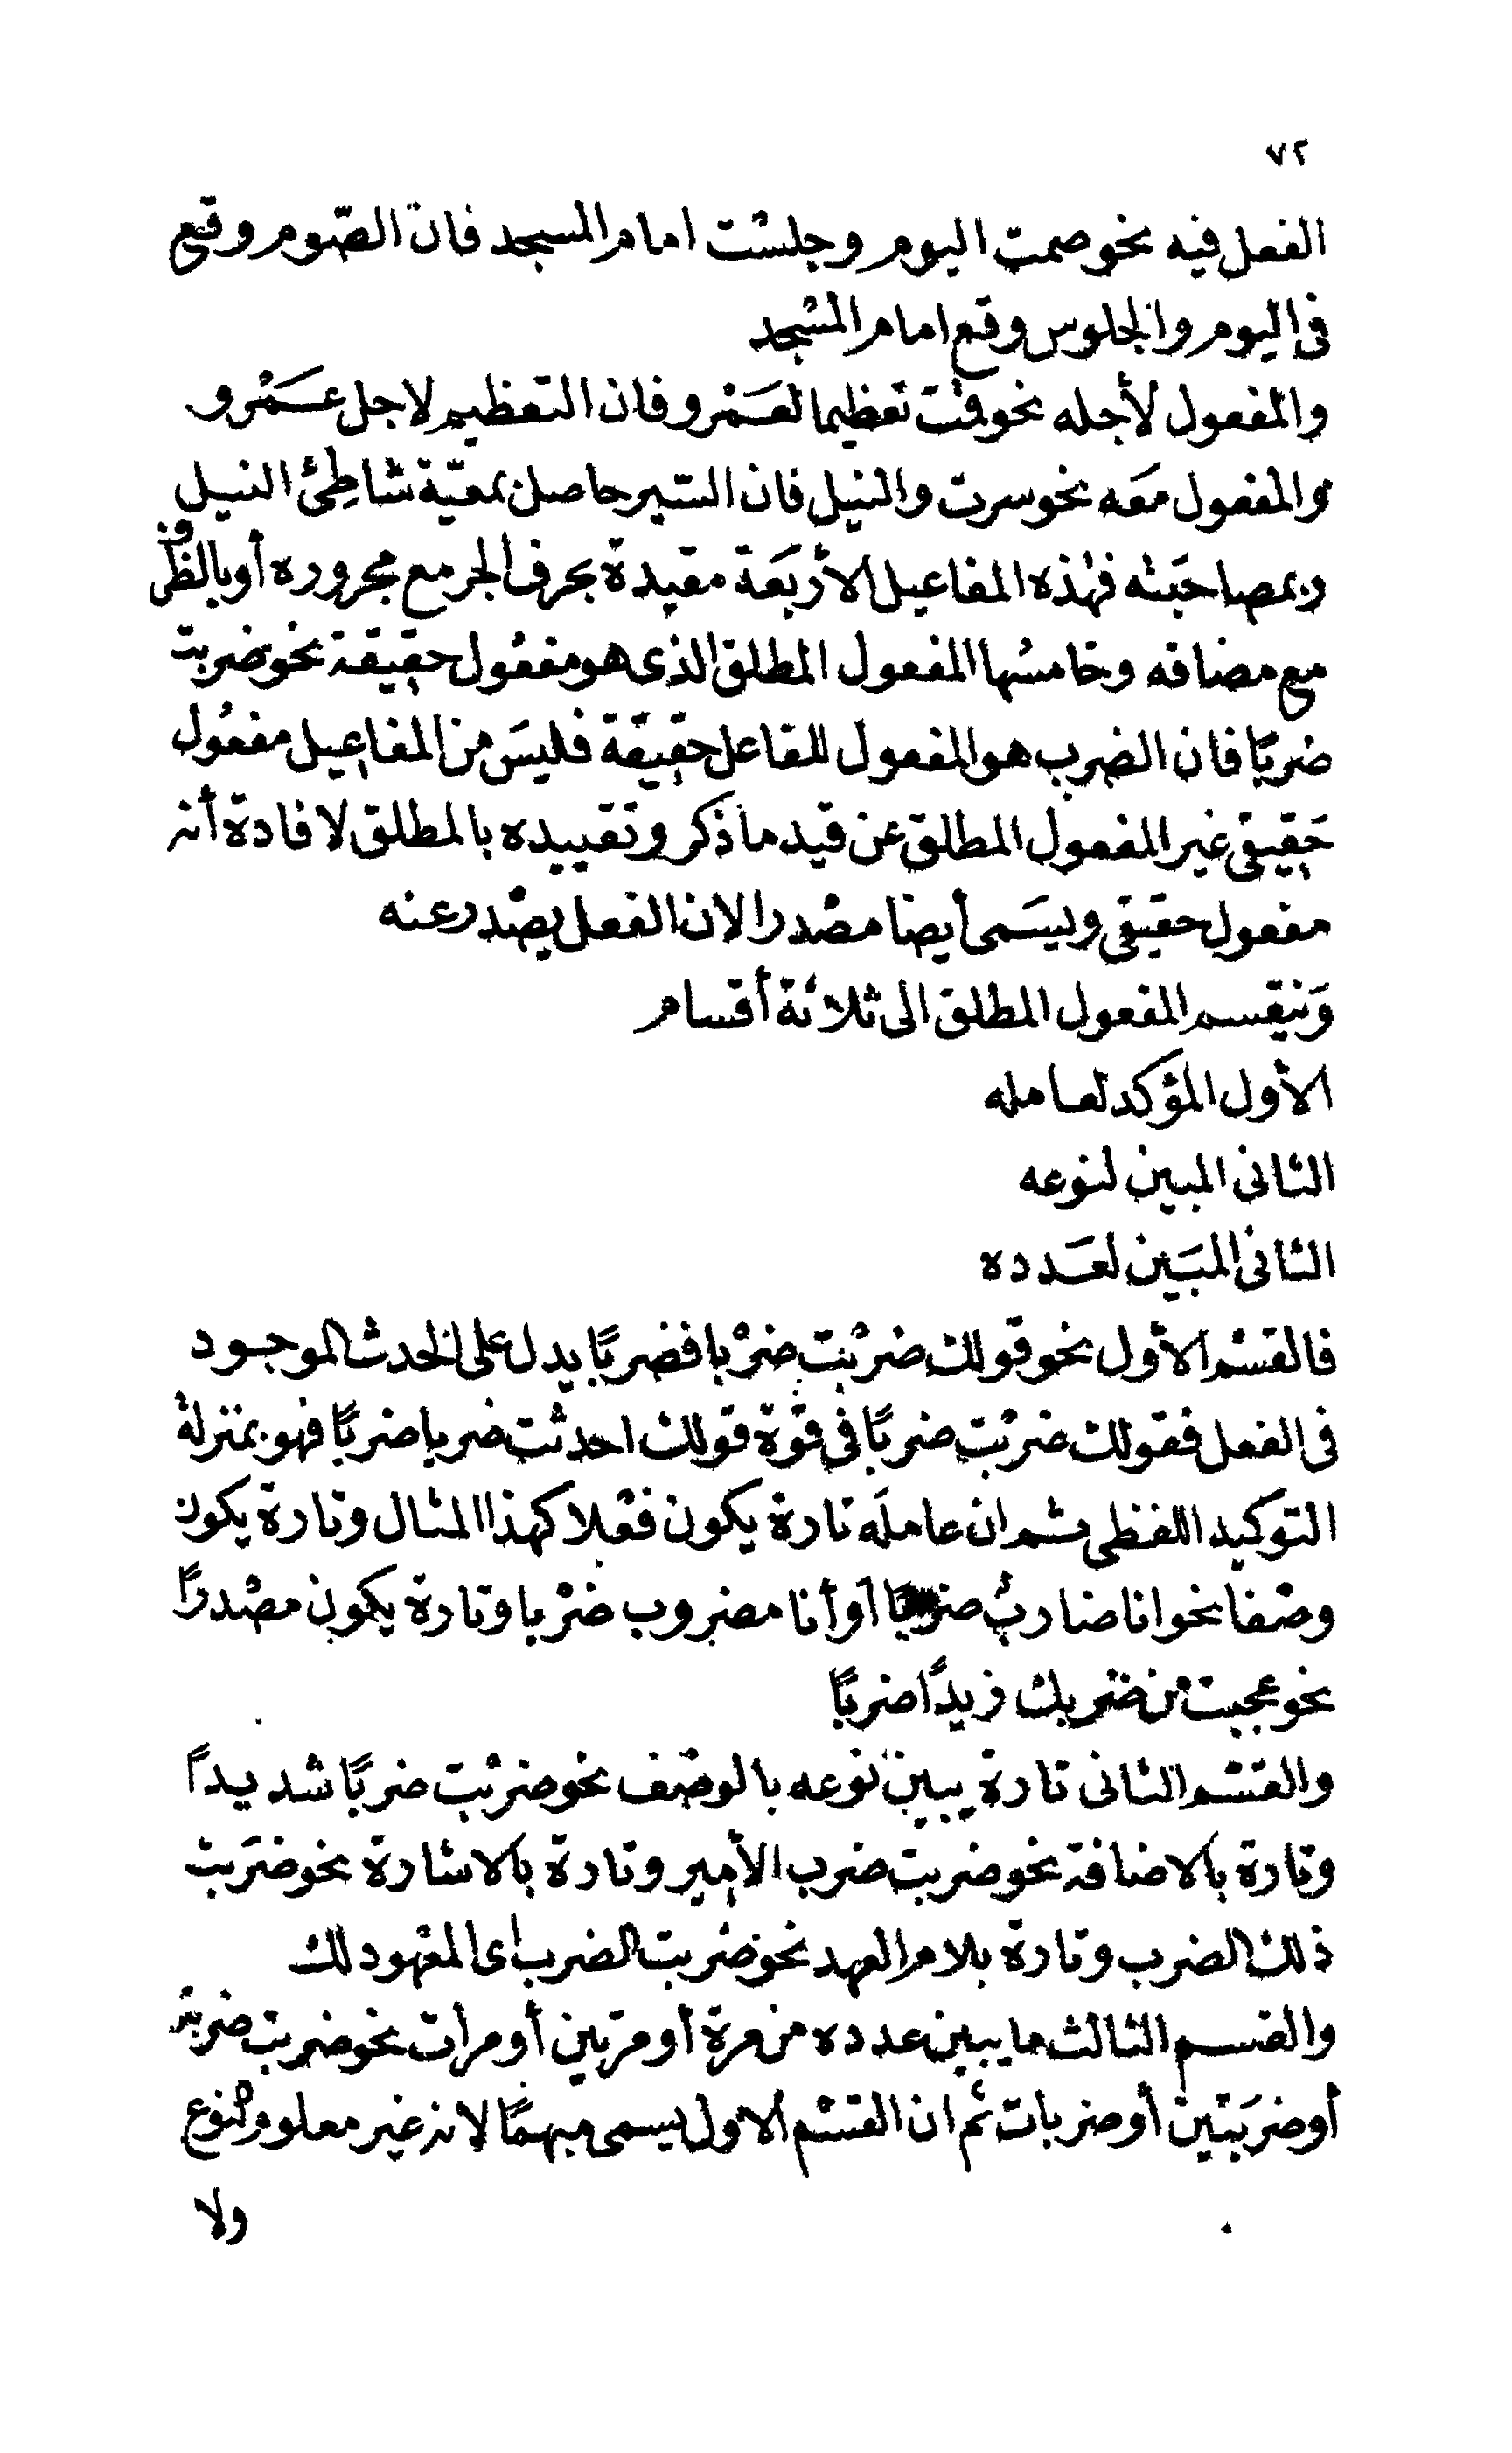 ٧٢
الفعل فيه نحو صمت اليوم وجلسْت امام المسجد فان الصّوم وقع
فى اليوم والجلوس وقع امام المسْجد
والمفعول لأجله نحو قمْت تعظيما لعَمْرو فان التعظيم لاجل عَمْرو
والمفعول معَه نحو سرت والنيل فان السّير حاصل بمعيّة شاطِئ النيل
وبمصاحَبته فهٰذه المفاعيل الأربَعة مقيدة بحرف الجر مع مجروره أو بالظرف
مع مضافه وخامسُها المفعول المطلق الذى هو مفعُول حقيقة نحو ضربت
ضربًا فان الضرب هو المفعول للفاعل حقيقة فليسَ من المفاعيل مفعُول
حَقيقى غير المفعول المطلق عن قيد ما ذكر وتقييده بالمطلق لافادة أنه
مفعول حقيقى ويسَمى أيضا مصْدرا لان الفعل يصْدر عنه
وَينقسم المفعول المطلق الى ثلاثة أقسام
الأول المؤكد لعامله
الثانى المبين لنوعه
الثانى المبَين لعَدده
فالقسْم الأول نحو قولك ضربْت ضرْبا فضربًا يدل على الحدث الموجود
فى الفعل فقولك ضربْت ضربًا فى قوّة قولك احدثت ضربا ضربًا فهو بمنزلة
التوكيد اللفظى ثم ان عاملَه تارة يكون فعْلا كهذا المثال وتارة يكون
وصْفا نحو انا ضاربٌ ضربًا أو أنا مضروب ضرْبا وتارة يكون مصْدرًا
نحو عجبت من ضربك زيدًا ضربًا
والقسْم الثانى تارة يبين نوعه بالوصْف نحو ضربْت ضربًا شديداً
وتارة بالاضافة نحو ضربت ضرب الأمير وتارة بالاشارة نحو ضرَبت
ذلك الضرب وتارة بلام العهد نحو ضربت الضرب اى المعْهود لك
والقسم الثالث ما يبين عدده من مرة أو مرتين أو مرات نحو ضربت ضربة
أو ضربَتين أو ضربات ثم ان القسْم الاول يسمى مبهمًا لانه غير معلوم النوع
ولا